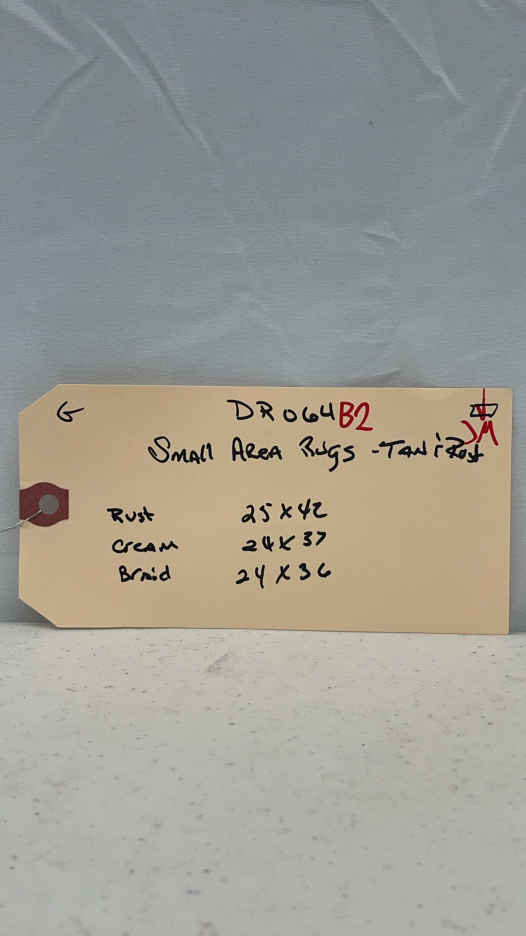 G DR064 B2
Small Area Rugs - Tan & Rust
JM
Rust 25 x 42
Cream 24 x 37
Braid 24 x 36